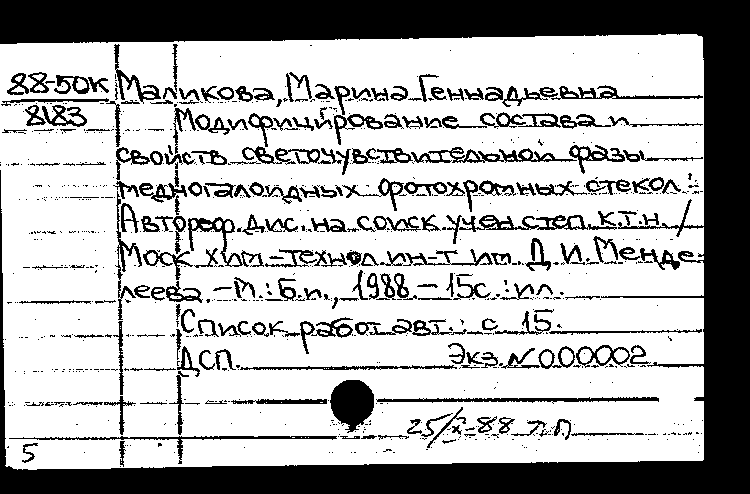 88-50К Маликова, Марина Геннадьевна
8183 Модифицирование состава и
свойств светочувствительной фазы
медногалоидных фотохромных стекол:
Автореф. дис. на соиск. учен. степ. к.т.н. /
Моск. хим.-технол. ин-т им. Д.И. Менде-
леева. - М.: Б.и., 1988. - 15с.: ил.
Список работ авт.: с. 15.
ДСП. Экз. № 000002.
25/X-88
5